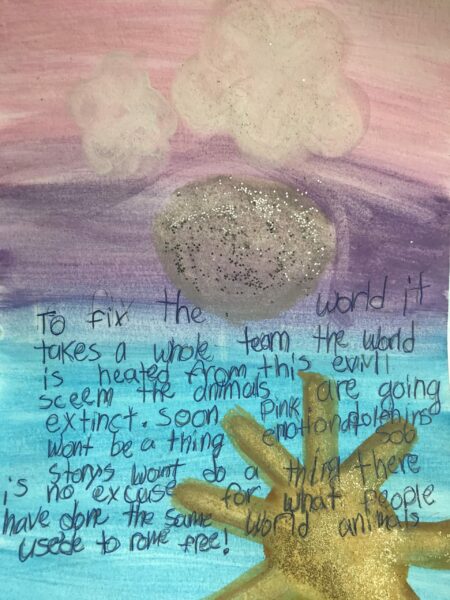 To fix the world it
takes a whole team the world
is heated from this evivil
sceem the animals are going
extinct. Soon Pink dolphins
wont be a thing emotional sob
storys wont do a thing there
is no excuse for what people
have done the same world animals
usede to rome free!